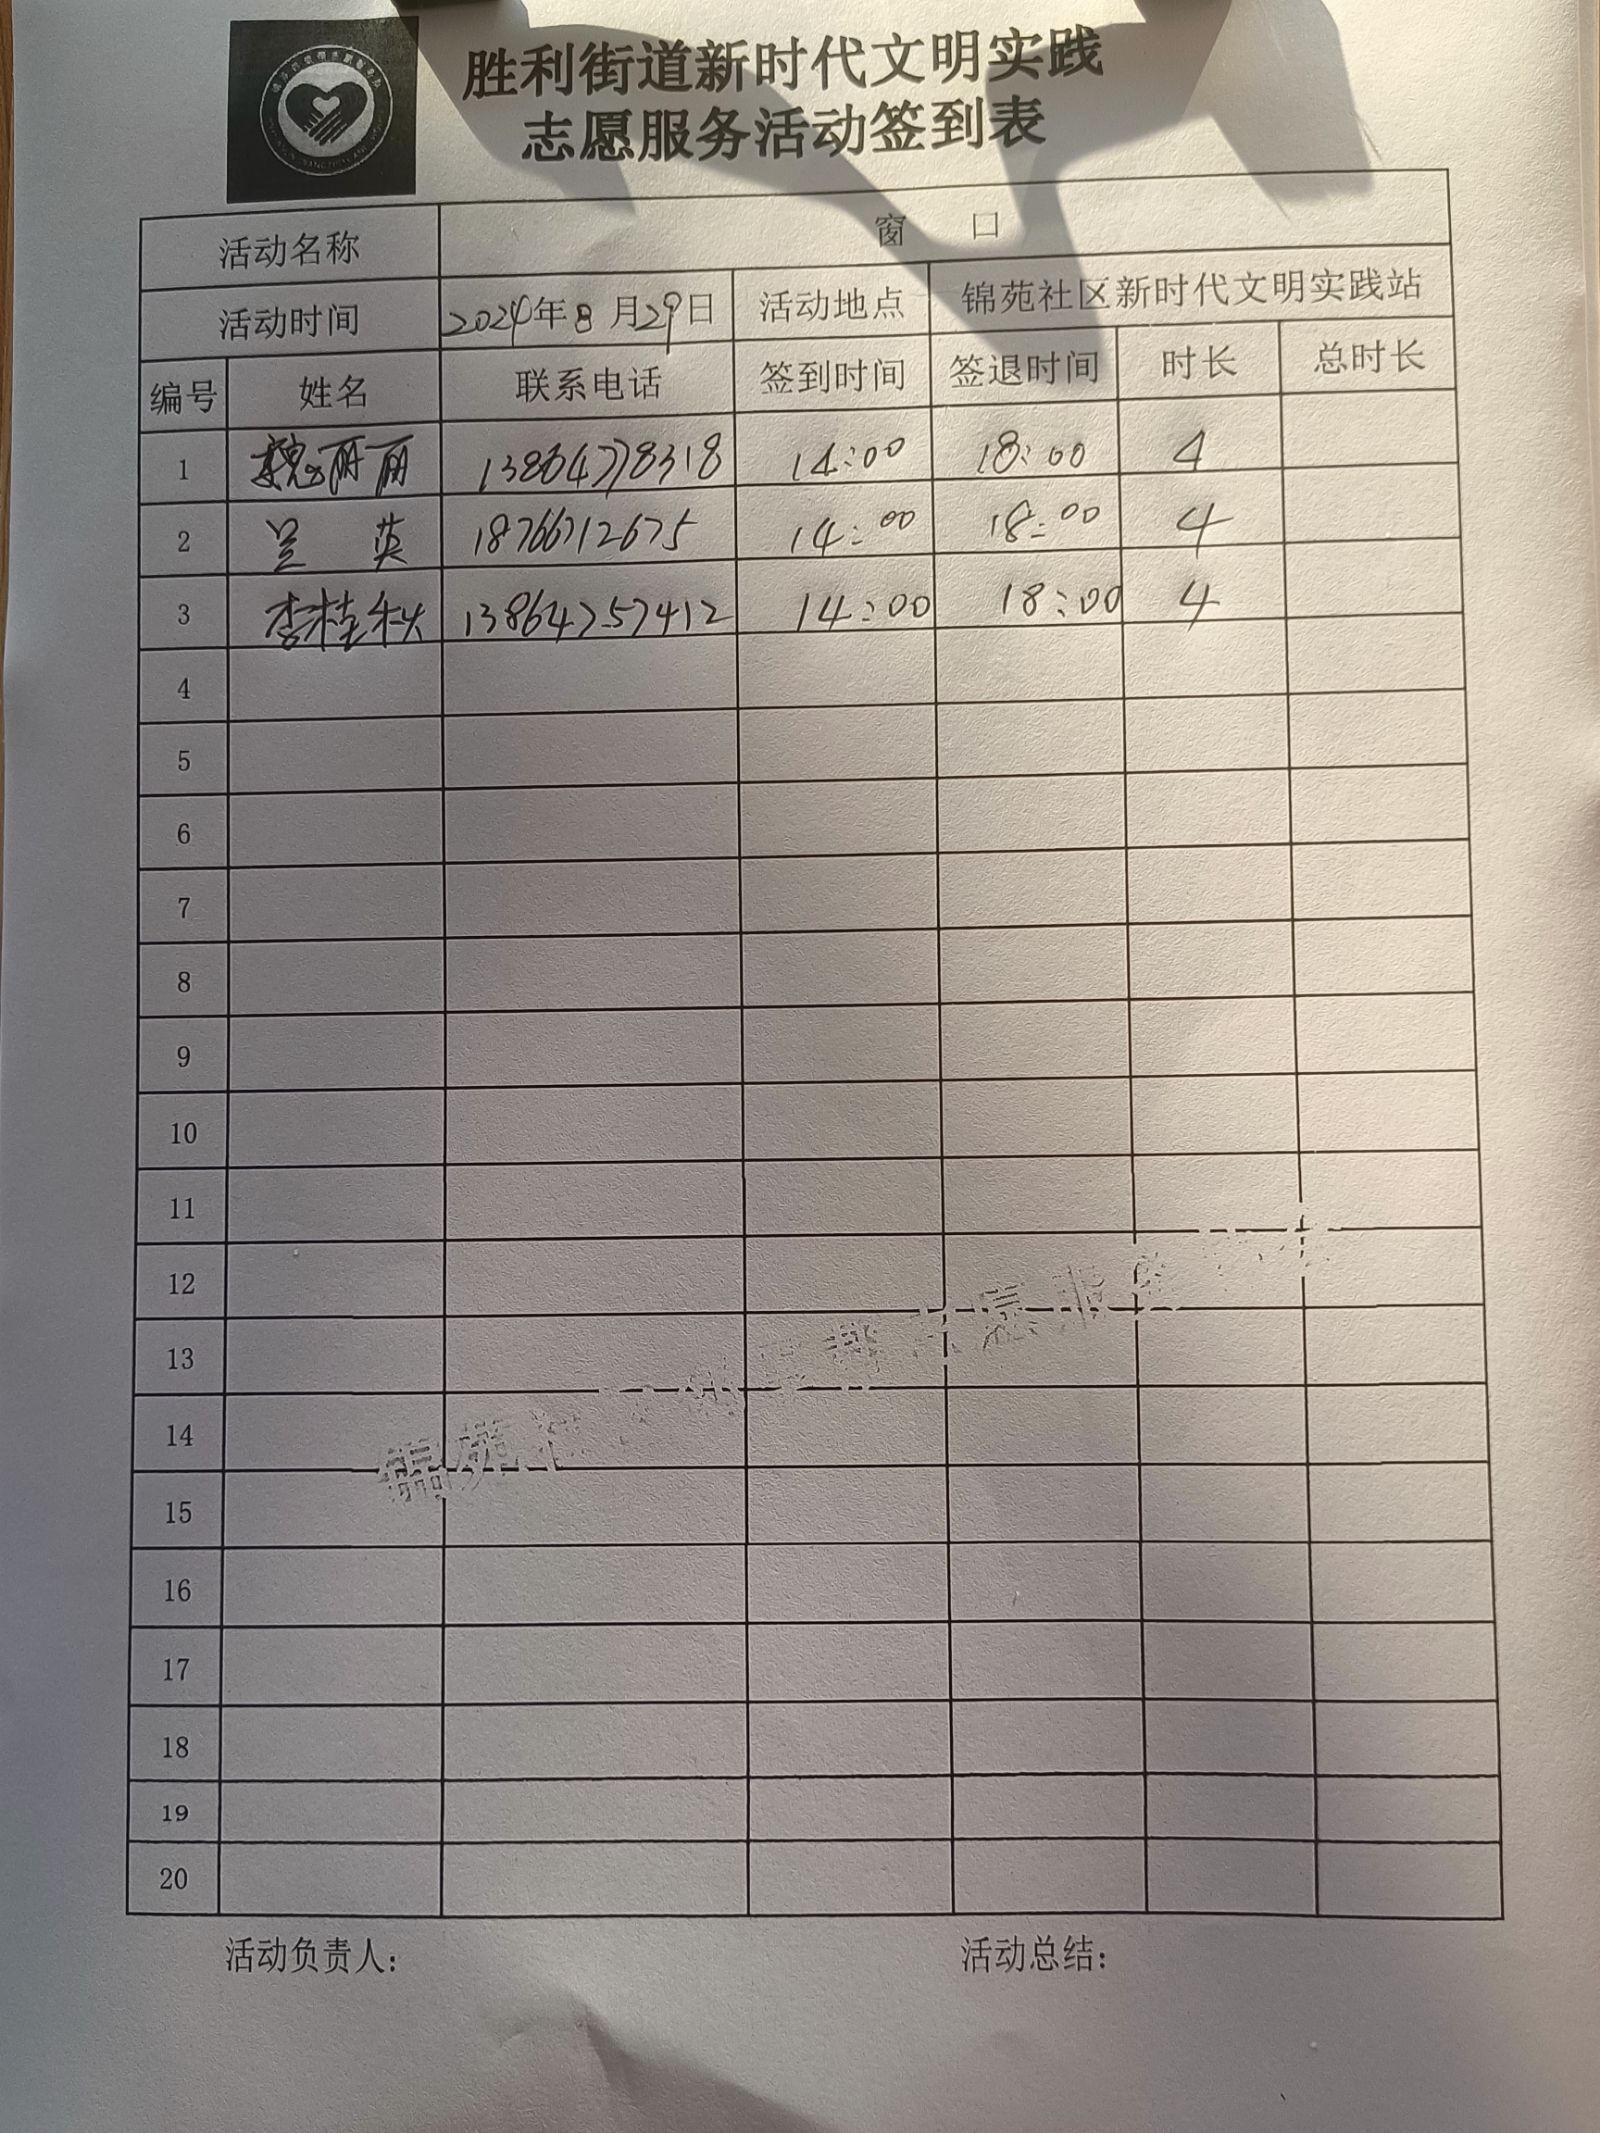 胜利街道新时代文明实践
志愿服务活动签到表
活动名称 窗 口
活动时间 2024年8月29日 活动地点 锦苑社区新时代文明实践站
编号 姓名 联系电话 签到时间 签退时间 时长 总时长
1 魏丽丽 13864778318 14:00 18:00 4
2 兰 英 18766712675 14:00 18:00 4
3 李桂秋 13864757412 14:00 18:00 4
4
5
6
7
8
9
10
11
12
13
14
15
16
17
18
19
20
活动负责人: 活动总结: